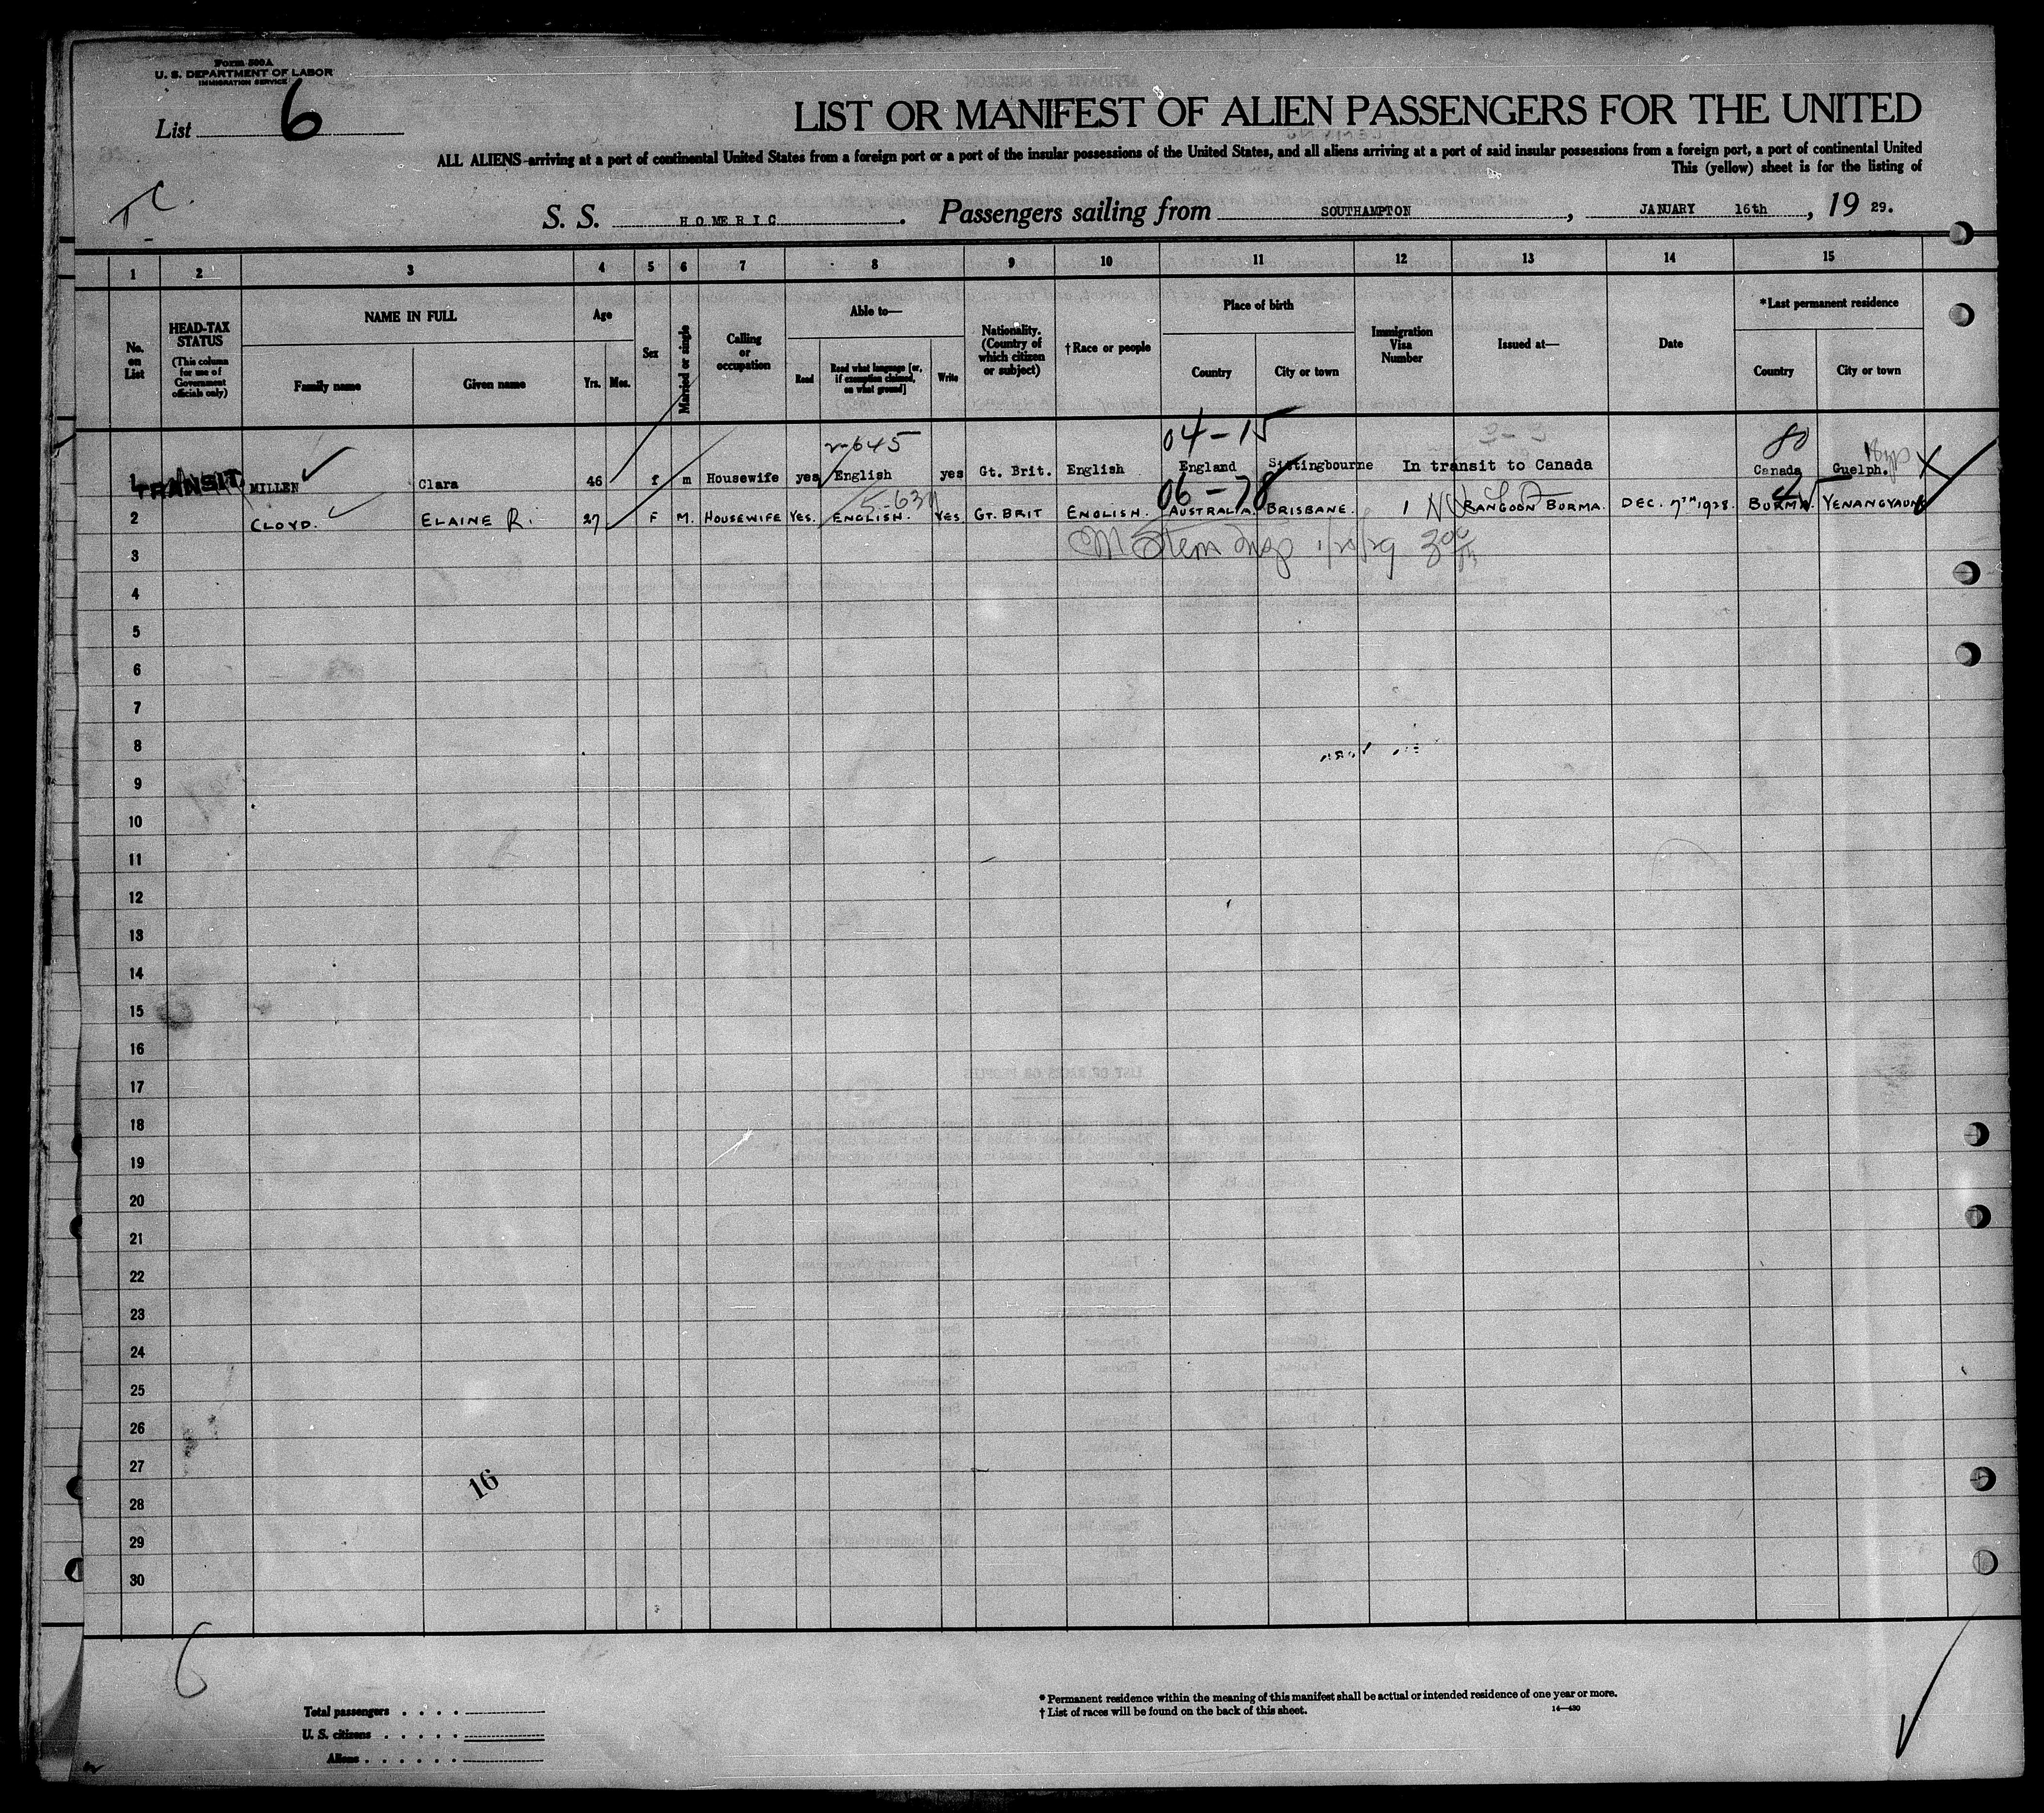 Form 500A
U. S. DEPARTMENT OF LABOR
IMMIGRATION SERVICE
List 6
LIST OR MANIFEST OF ALIEN PASSENGERS FOR THE UNITED
ALL ALIENS arriving at a port of continental United States from a foreign port or a port of the insular possessions of the United States, and all aliens arriving at a port of said insular possessions from a foreign port, a port of continental United
This (yellow) sheet is for the listing of
S. S. HOMERIC. Passengers sailing from SOUTHAMPTON, JANUARY 16th, 19 29.
1 2 3 4 5 6 7 8 9 10 11 12 13 14 15
No. on List
HEAD-TAX STATUS
(This column for use of Government officials only)
NAME IN FULL
Family name Given name
Age
Yrs. Mos.
Sex
Married or single
Calling or occupation
Able to—
Read Read what language [or, if exemption claimed, on what ground] Write
Nationality. (Country of which citizen or subject)
†Race or people
Place of birth
Country City or town
Immigration Visa Number
Issued at—
Date
*Last permanent residence
Country City or town
2-645 04-15 80
1 TRANSIT MILLEN Clara 46 f m Housewife yes English yes Gt. Brit. English England Sittingbourne In transit to Canada Canada Guelph.
06-78
2 CLOYD. ELAINE R. 27 F M. HOUSEWIFE YES. ENGLISH. YES GT. BRIT ENGLISH. AUSTRALIA. BRISBANE. RANGOON BURMA. DEC. 7TH 1928. BURMA. YENANGYAUNG
3
4
5
6
7
8
9
10
11
12
13
14
15
16
17
18
19
20
21
22
23
24
25
26
27
16
28
29
30
6
Total passengers
U. S. citizens
Aliens
* Permanent residence within the meaning of this manifest shall be actual or intended residence of one year or more.
† List of races will be found on the back of this sheet.
14—430